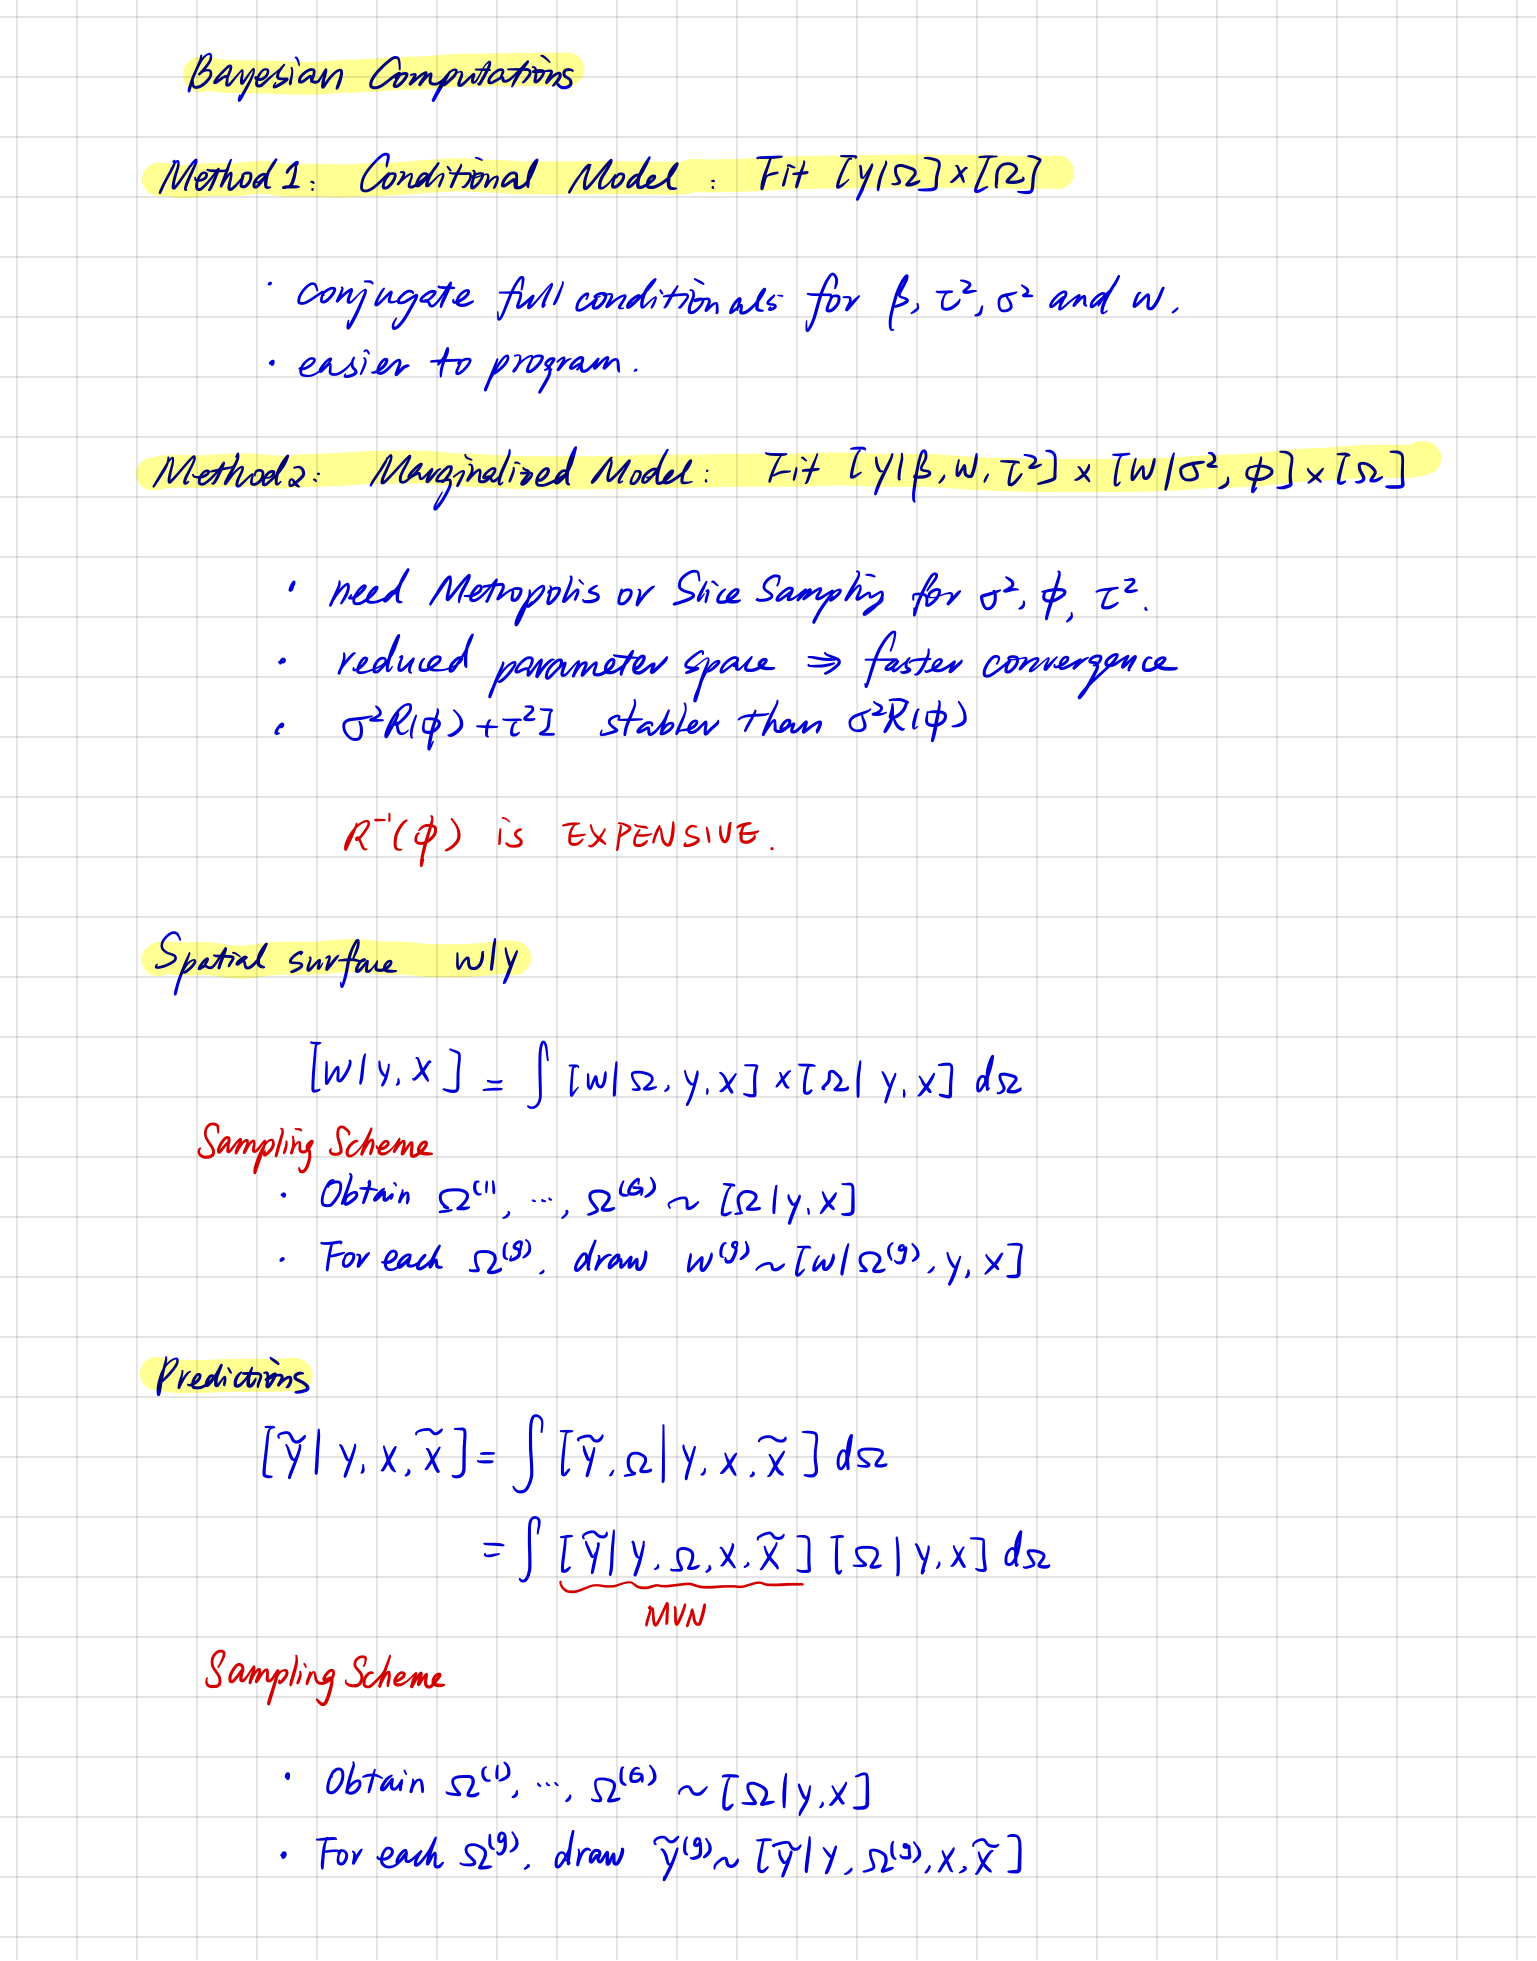 Bayesian Computations
Method 1: Conditional Model: Fit [y|Ω]×[Ω]
· conjugate full conditionals for β, τ², σ² and w.
· easier to program.
Method 2: Marginalized Model: Fit [y|β, w, τ²] × [w|σ², φ] × [Ω]
· need Metropolis or Slice Sampling for σ², φ, τ².
· reduced parameter space ⇒ faster convergence
· σ²R(φ) + τ²I stabler than σ²R(φ)
R⁻¹(φ) is EXPENSIVE.
Spatial surface w|y
[w|y, x] = ∫ [w|Ω, y, x] × [Ω| y, x] dΩ
Sampling Scheme
· Obtain Ω⁽¹⁾, ..., Ω⁽ᴳ⁾ ~ [Ω|y, x]
· For each Ω⁽ᵍ⁾, draw w⁽ᵍ⁾ ~ [w|Ω⁽ᵍ⁾, y, x]
Predictions
[ỹ| y, x, x̃] = ∫ [ỹ, Ω| y, x, x̃] dΩ
= ∫ [ỹ| y, Ω, x, x̃] [Ω| y, x] dΩ
MVN
Sampling Scheme
· Obtain Ω⁽¹⁾, ..., Ω⁽ᴳ⁾ ~ [Ω|y, x]
· For each Ω⁽ᵍ⁾, draw ỹ⁽ᵍ⁾ ~ [ỹ| y, Ω⁽ᵍ⁾, x, x̃]